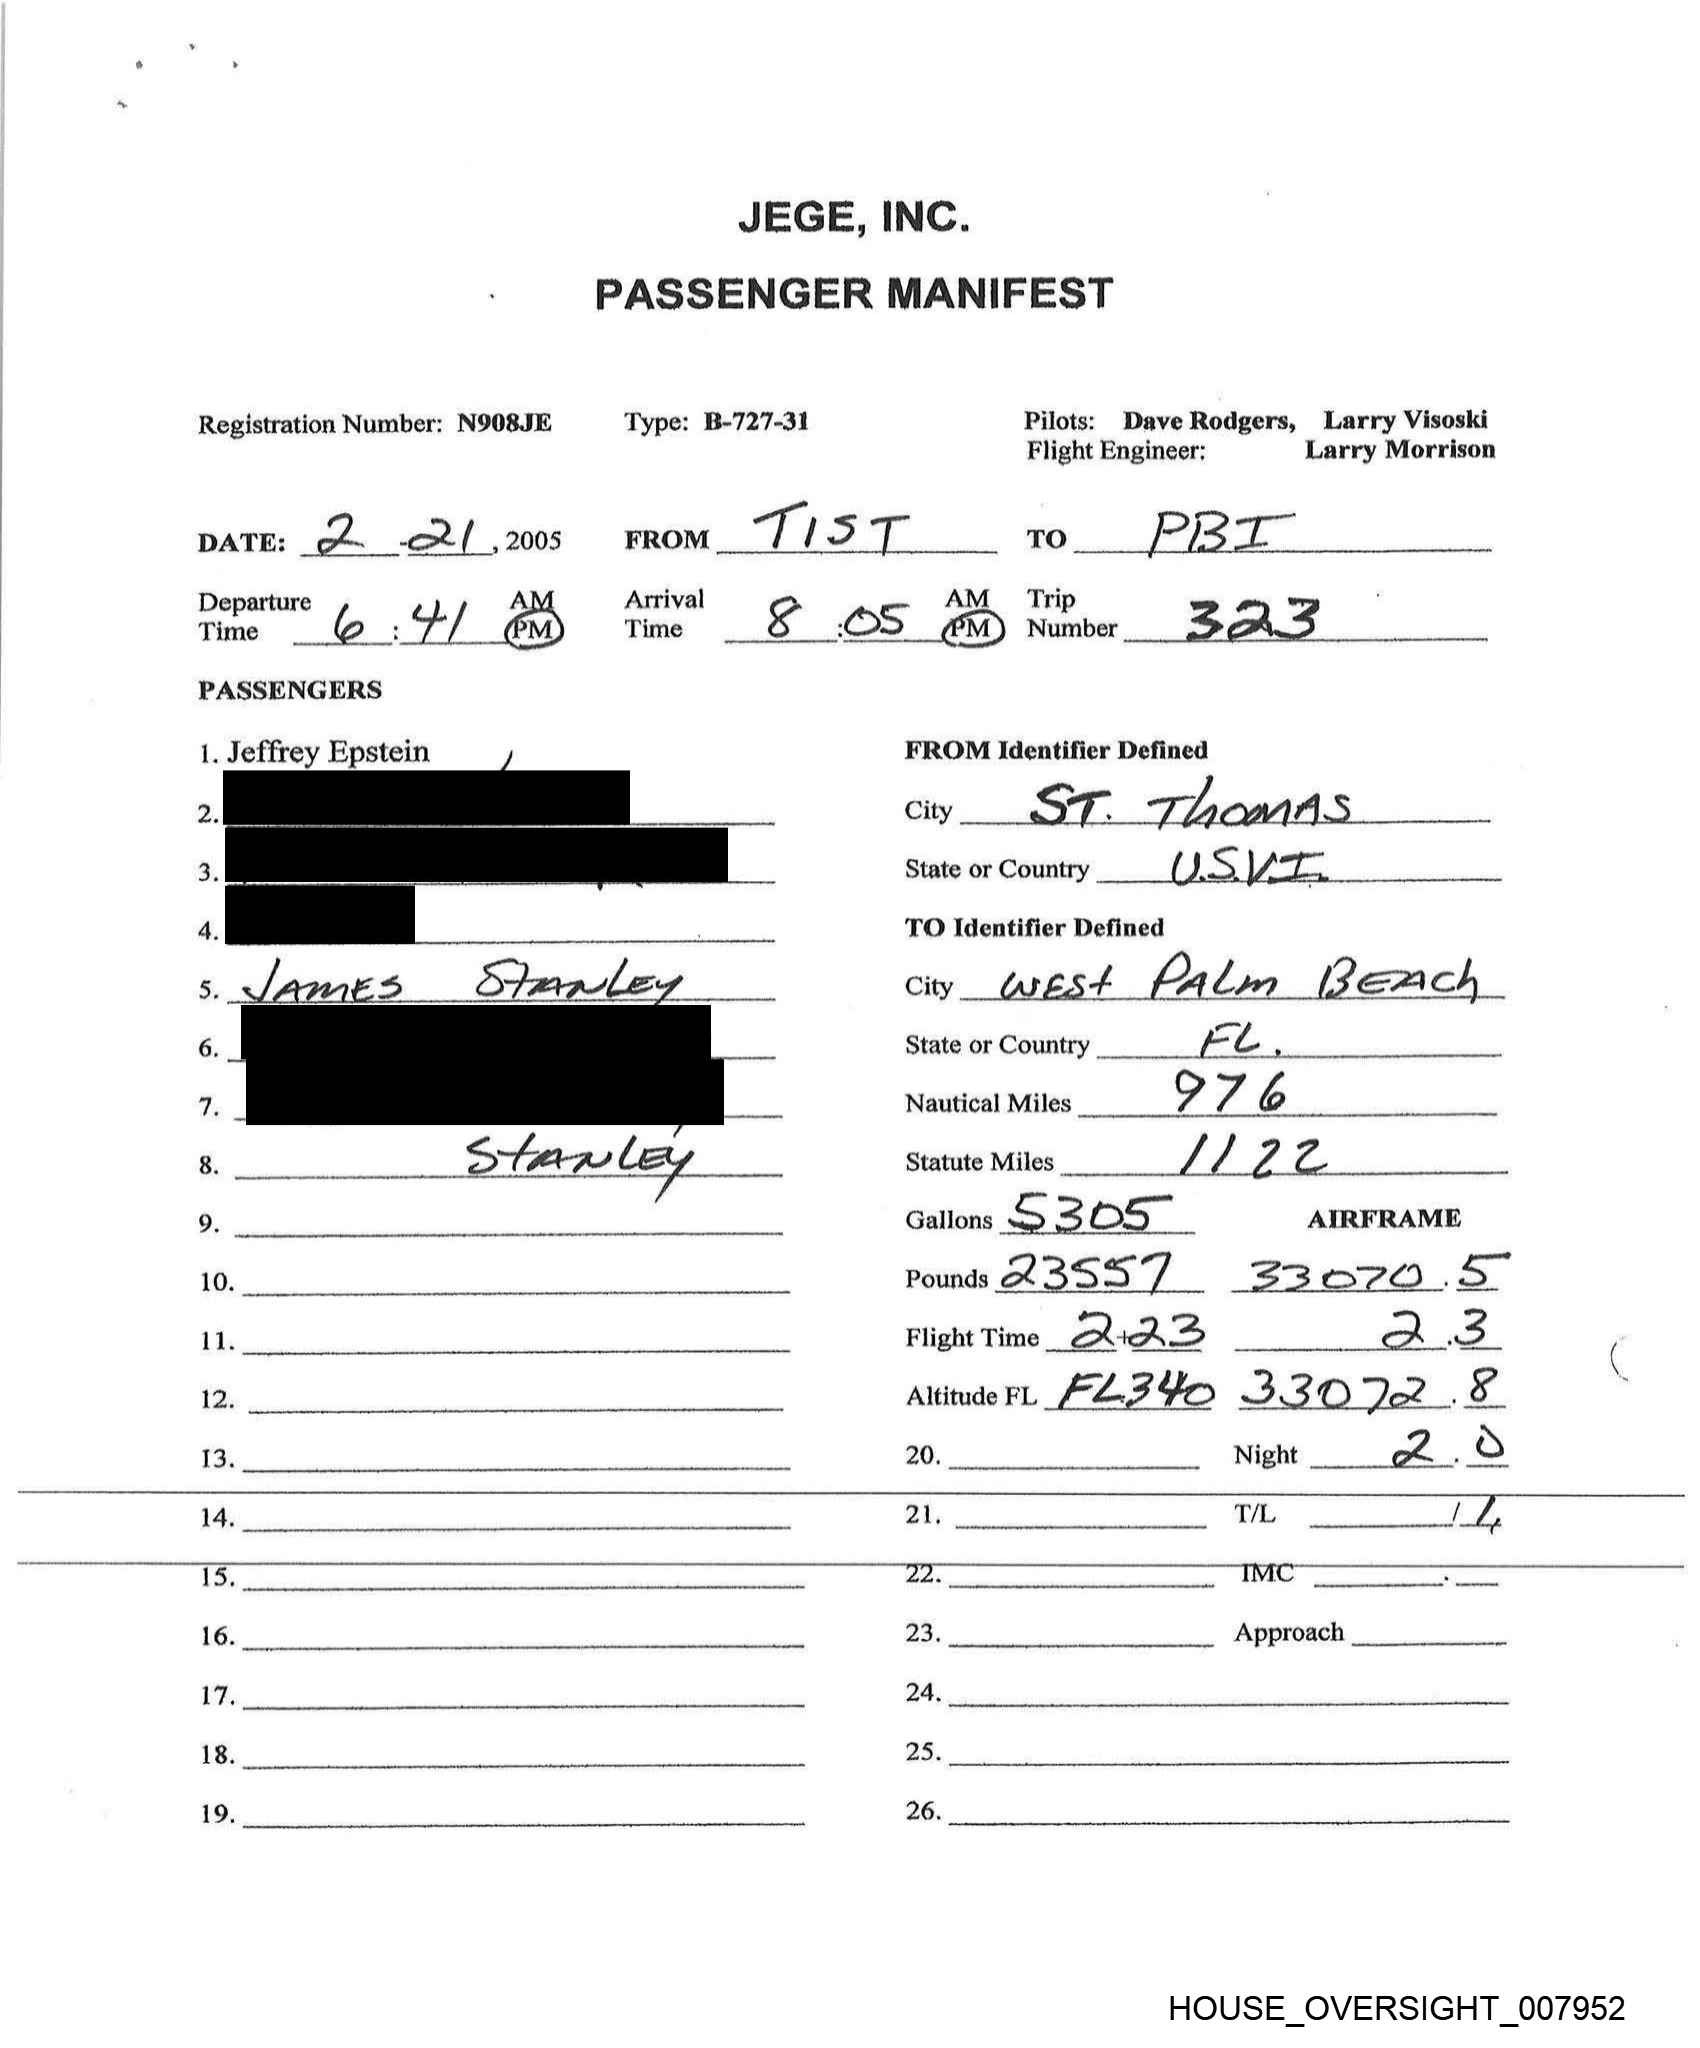 JEGE, INC.
PASSENGER MANIFEST
Registration Number: N908JE Type: B-727-31 Pilots: Dave Rodgers, Larry Visoski
Flight Engineer: Larry Morrison
DATE: 2-21, 2005 FROM TIST TO PBI
Departure Time 6:41 AM PM Arrival Time 8:05 AM PM Trip Number 323
PASSENGERS
1. Jeffrey Epstein FROM Identifier Defined
2. City ST. THOMAS
3. State or Country U.S.V.I.
4. TO Identifier Defined
5. JAMES STANLEY City WEST PALM BEACH
6. State or Country FL.
7. Nautical Miles 976
8. STANLEY Statute Miles 1122
9. Gallons 5305 AIRFRAME
10. Pounds 23557 33070.5
11. Flight Time 2+23 2.3
12. Altitude FL FL340 33072.8
13. 20. Night 2.0
14. 21. T/L /
15. 22. IMC .
16. 23. Approach
17. 24.
18. 25.
19. 26.
HOUSE_OVERSIGHT_007952